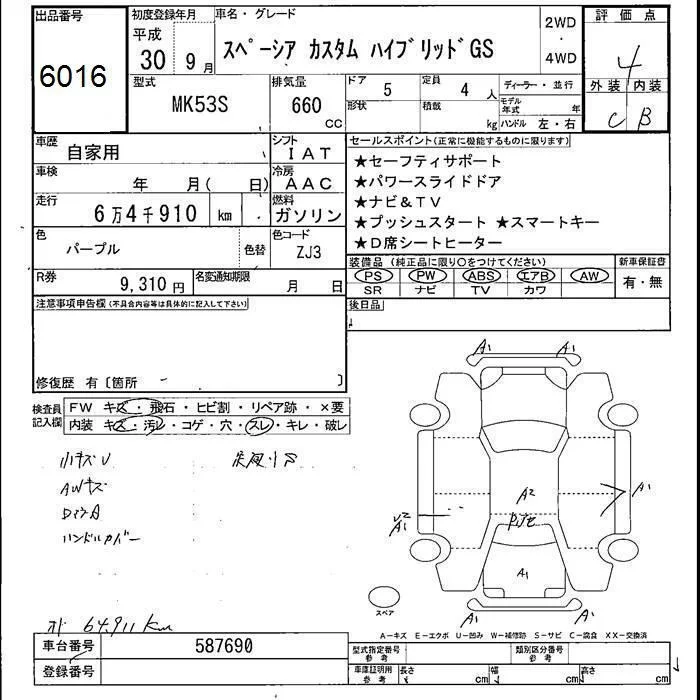 出品番号
6016
初度登録年月
平成
30 9月
車名・グレード
スペーシア カスタム ハイブリッドGS
2WD
・
4WD
評価点
4
外装 内装
C B
型式
MK53S
排気量
660
CC
ドア
5
形状
定員
4 人
積載
kg
ディーラー・並行
モデル年式 年
ハンドル 左・右
車歴
自家用
シフト
IAT
車検
年 月( 日)
冷房
AAC
走行
6万4千910 km
燃料
ガソリン
色
パープル
色替
色コード
ZJ3
R券
9,310 円
名変通知期限
月 日
セールスポイント(正常に機能するものに限ります)
★セーフティサポート
★パワースライドドア
★ナビ&TV
★プッシュスタート ★スマートキー
★D席シートヒーター
装備品 (純正品に限り○をつけてください)
PS PW ABS エアB AW
SR ナビ TV カワ
新車保証書
有・無
後日品
注意事項申告欄(不具合内容等は具体的に記入して下さい)
修復歴 有〔箇所 〕
検査員
記入欄
FW キズ・飛石・ヒビ割・リペア跡・×要
内装 キズ・汚レ・コゲ・穴・スレ・キレ・破レ
小キズU
AWキズ
ハンドルカバー
64,911 km
A1 A1
A1
A2
U2
A1
A1
A1 A1
スペア
A-キズ E-エクボ U-凹み W-補修跡 S-サビ C-腐食 XX-交換済
車台番号
587690
登録番号
型式指定番号
参考
類別区分番号
参考
車庫証明用
参考
長さ cm
幅 cm
高さ cm